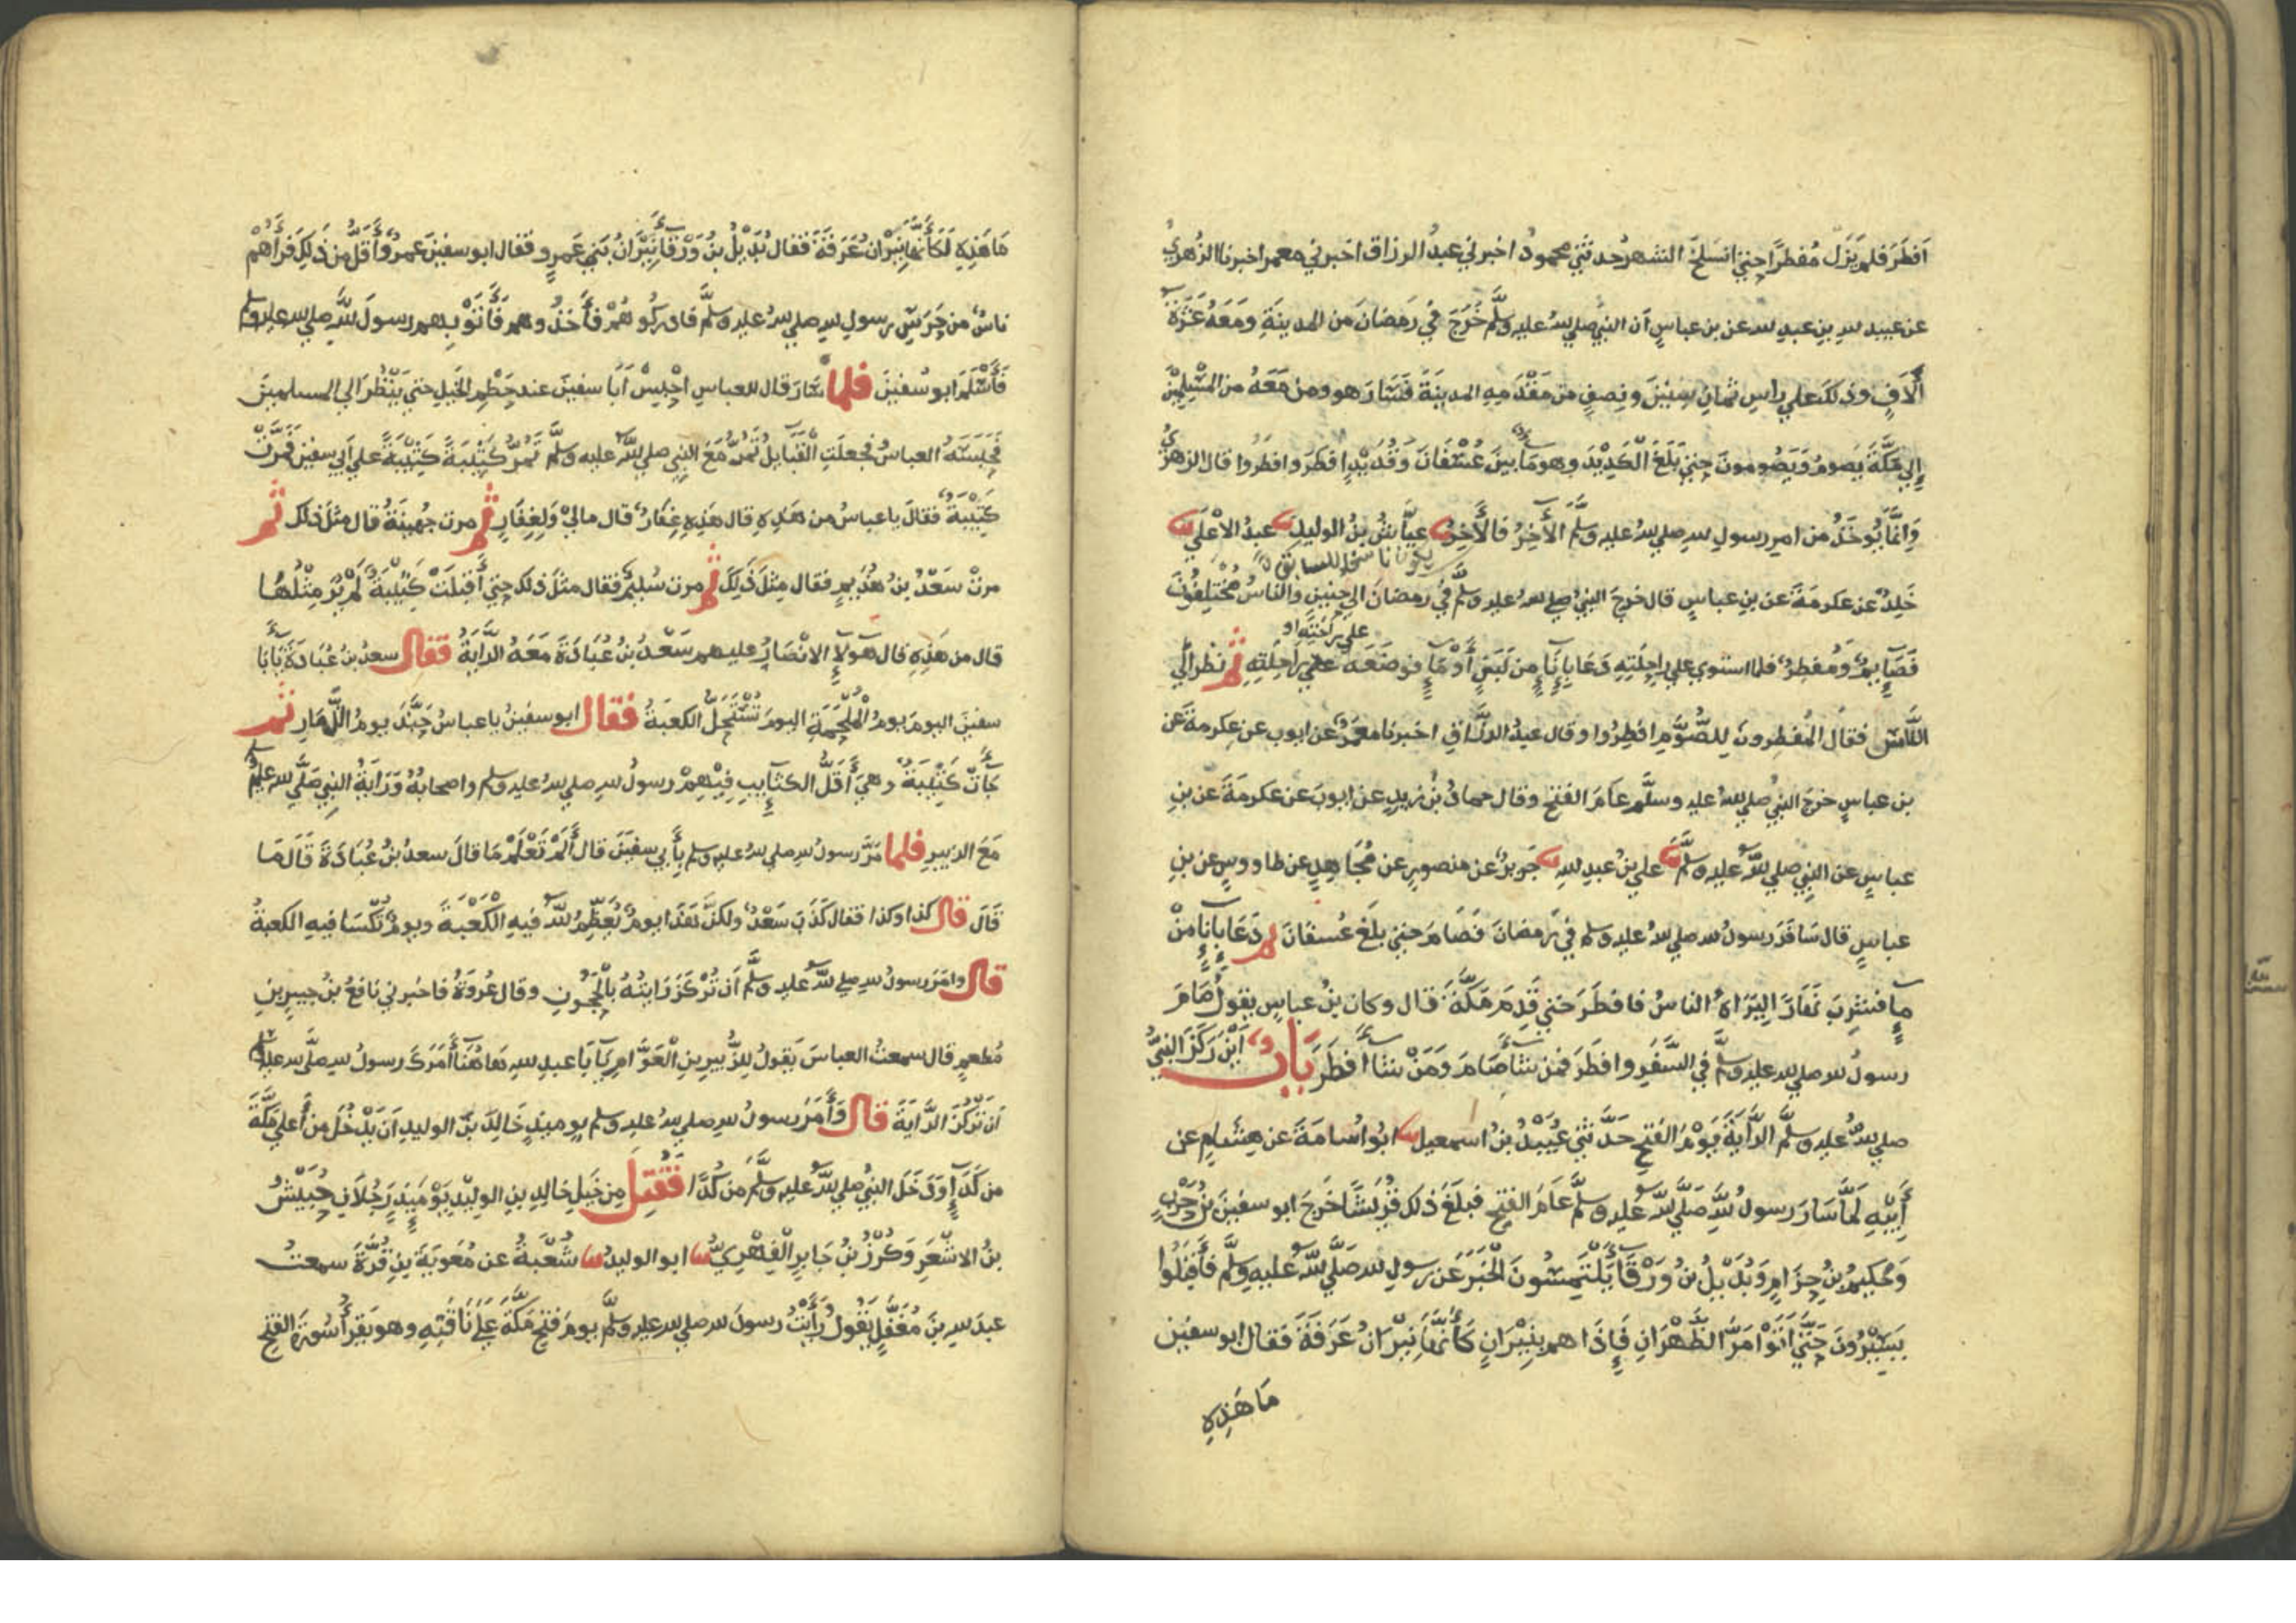 اَفطَرَ فلم يَزَل مُفطرًا حتي انسَلخَ الشهرُ حدثني محمودٌ اخبرني عبدُ الرزاق اخبرني معمر اخبرنا الزهريُ
عن عبيد لله بنِ عبدِ لله عن بن عباسٍ أن النبي صلي لله عليه وسلَّم خَرَجَ في رَمضَانَ من المدينَةِ ومَعَهُ عَشَرَة
اٰلَافٍ وذلكَ علي راسِ ثمانِ سِنِيْنَ ونِصفٍ من مَقْدَمِهِ المدينَةَ فَسَارَ هو ومن مَعَهُ من المُسْلِمِيْنَ
إلي مَكَّةَ يَصومُ وَيَصُومونَ حتي بَلَغَ الكَدِيْدَ وهو مَاءٌ بينَ عُسْفَانَ وَقُدَيْدٍ افطَرَ وافطَرُوا قال الزهريُّ
وَاِنَّمَا يُوخَذُ من امرِ رسولِ لله صلي لله عليه وسلَّم الْأٰخِرُ فَالْأٰخِرُ ثنا عَيَّاشُ بنُ الوليدِ ثنا عبدُ الاعْلَي ثنا
خَلِدٌ عن عكرمَةَ عن بنِ عباسٍ قال خرجَ النبيُ صلي لله عليه وسلَّم في رمضانَ الي حنينٍ والناسُ مُخْتَلِفُونَ
علي رَاحَتِهِ او
فَصَايِمٌ وَمُفطِرٌ فلما استوي علي راحِلَتِهِ دَعَا بِاِنَاءٍ من لَبَنٍ أَوْ مَاءٍ فوضَعَهُ علي راحِلَتِهِ ثم نظر الي
النَّاسِ فقال المُفطِرونَ للصُّوَّمِ افطِرُوا وقال عبدُ الرزَّاقِ اخبرنا معمرٌ عن ايوب عن عِكرمةَ عَن
بن عباسٍ خرجَ النبيُ صلي لله عليه وسلَّم عامَ الفتح وقال حمادُ بْنُ زيدٍ عن ايوبَ عن عكرمةَ عن بنِ
عباسٍ عن النبِي صلي لله عليه وسلَّم ثنا علي بنُ عبدِ للهِ ثنا جَريرٌ عن منصورٍ عن مُجَاهِدٍ عن طاووسٍ عن بنِ
عباسٍ قال سَافَرَ رسولُ لله صلي لله عليه وسلم في رَمضانَ فَصَامَ حتي بلَغَ عُسفانَ ثم دَعَا بِاِنَاءٍ مِنْ
مَاءٍ فشَرِبَ نَهَارًا لِيَرَاهُ الناسُ فافطَرَ حَتي قَدِمَ مَكَّةَ قال وكان بنُ عباسٍ يقولُ صَامَ
رسولُ لله صلي لله عليه وسلَّم في السَّفرِ وافطَرَ فمن شاءَ صَامَ وَمَنْ شاءَ أفطَرَ بَابٌ أَيْنَ رَكَزَ النبيُّ
صلي لله عليه وسلَّم الرَّايَةَ يَوْمَ الفتحِ حَدَّثني عُبَيْدُ بنُ اسمعيل ثنا ابو اُسامَةَ عن هِشَامٍ عن
أَبِيْهِ لَمَّا سَارَ رسولُ للهِ صَلَّي لله عليه وسلَّم عَامَ الفتحِ فبلَغَ ذلك قُرَيْشًا خَرَجَ ابو سفينَ بْنُ حَرْبٍ
وَحَكِيمُ بْنُ حِزَامٍ وَبُدَيْلُ بْنُ وَرْقَاءَ يَلْتَمِسُونَ الْخَبَرَ عَن رسولِ لله صَلَّي لله عليهِ وسلَّم فَأَقْبَلُوا
يَسِيْرُونَ حَتَّي أَتَوْا مَرَّ الظَّهْرَانِ فَإِذَا هم بِنِيْرَانٍ كَأَنَّهَا نِيْرَانُ عَرَفَةَ فَقال ابو سفين
مَا هَذِهِ
مَا هَذِهِ لَكَأَنَّهَا نِيْرَان عَرَفَةَ فقال بُدَيْلُ بنُ وَرْقَاءَ نِيْرَانُ بَنِي عَمرٍو فقال ابو سفين عمرٌو أَقَلُّ من ذَلِكَ فَرَأٰهُمْ
ناسٌ من حَرَسِ رسولِ للهِ صلي لله عليه وسلَّم فادركُوهُمْ فأَخَذُوهم فَأَتَوْ بِهم رسولَ للَّهِ صلي لله عليه وسلم
فَأَسْلَمَ ابو سُفينَ فلما سَارَ قال للعباسِ احْبِسْ أَبَا سفينَ عند حَطْمِ الخيلِ حتي يَنْظُرَ الي المسلمينَ
فحَبَسَهُ العباسُ فجعلَتِ الْقَبَايِلُ تَمُرُّ مَعَ النبِي صلي لله عليه وسلَّم تَمُرُّ كَتِيْبَةً كَتِيْبَةً علي ابي سفينَ فَمَرَّتْ
كَتِيْبَةٌ فقالَ يا عباسُ من هَذِهِ قال هَذِهِ غِفَارُ قال مالِيْ وَلِغِفَارٍ ثم مرت جُهينَةُ قال مثلَ ذلك ثم
مرتْ سَعْدُ بنُ هُذَيمٍ فقال مِثلَ ذَلِكَ ثم مرت سُليمٌ فقال مثلَ ذلك حتي أَقبَلَتْ كَتِيْبَةٌ لَمْ يَرَ مِثْلَهَا
قال من هَذِهِ قال هولآءِ الانْصَارُ عليهم سَعْدُ بْنُ عُبَادَةَ مَعَهُ الرَّايَةُ فقال سعدُ بنُ عُبَادَةَ يَا أَبَا
سفينَ اليومَ يومُ الْمَلْحَمَةِ اليومَ تُسْتَحَلُّ الكعبَةُ فقال ابو سفينَ يا عباسُ حَبَّذَ يومُ الذِّمَارِ ثم
جَاءَتْ كَتِيْبَةٌ وهيَ أَقَلُّ الكتَايِبِ فِيْهِمْ رسولُ للهِ صلي لله عليه وسلم واصحابُهُ وَرَايَةُ النبِي صَلَّي لله عليه وسلم
مَعَ الزبيرِ فلما مَرَّ رسولُ للهِ صلي لله عليه وسلم بِأَبِي سفينَ قال أَلَمْ تَعْلَمْ مَا قالَ سعدُ بْنُ عُبَادَةَ قَالَ مَا
قَالَ قال كذا وكذا فقال كَذَبَ سَعْدٌ ولكنْ هَذَا يومٌ يُعَظِّمُ للهُ فيهِ الْكَعْبَةَ ويومٌ تُكْسَا فيهِ الكعبةُ
قال وامَرَ رسولُ للهِ صلي لله عليه وسلَّم اَنْ تُرْكَزَ رَايَتُهُ بالْحَجُونِ وقال عُروَةُ فاخبرني نافعُ بْنُ جبيرِ بنِ
مُطعمٍ قال سمعتُ العباسَ يَقولُ للزُّبيرِ بنِ الْعَوَّامِ يَا أَبَا عبدِ لله هَا هُنَا أَمَرَكَ رسولُ لله صلَّي لله عليه وسلم
اَنْ تَرْكُزَ الرَّايَةَ قال وَأَمَرَ رسولُ للهِ صلي لله عليه وسلم يوميذٍ خَالِدَ بْنَ الوليدِ اَنْ يَدْخُلَ من أَعلي مَكَّةَ
من كَدَاءٍ وَدَخَلَ النبيُ صلي لله عليه وسلَّم من كُدَا فَقُتِلَ مِن خيلِ خالِدِ بنِ الوليْدِ يَوْمَيِذٍ رَجُلَانِ حُبَيْشُ
بْنُ الاشْعَرِ وَكُرْزُ بْنُ جَابِرٍ الْفِهْرِيُّ ثنا ابو الوليدِ ثنا شُعْبَةُ عن مُعَويَةَ بْنِ قُرَّةَ سمعتُ
عبدَ للهِ بنَ مُغَفَّلٍ يَقُولُ رَأَيْتُ رسولَ لله صلي لله عليه وسلَّم يومَ فتحِ مَكَّةَ عَلَي نَاقَتِهِ وهو يَقرأُ سُورَةَ الفتحِ